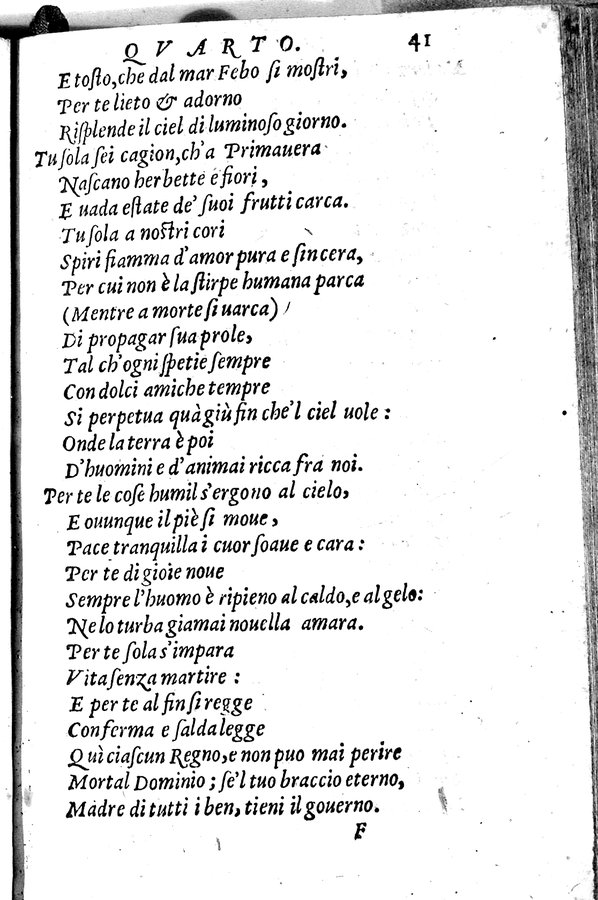 QVARTO. 41
E toſto, che dal mar Febo ſi moſtri,
Per te lieto & adorno
Riſplende il ciel di luminoſo giorno.
Tu ſola ſei cagion, ch'a Primauera
Naſcano herbette e fiori,
E uada eſtate de' ſuoi frutti carca.
Tu ſola a noſtri cori
Spiri fiamma d'amor pura e ſincera,
Per cui non è la ſtirpe humana parca
(Mentre a morte ſi uarca)
Di propagar ſua prole,
Tal ch'ogni ſpetie ſempre
Con dolci amiche tempre
Si perpetua quà giù fin che'l ciel uole:
Onde la terra è poi
D'huomini e d'animai ricca fra noi.
Per te le coſe humil s'ergono al cielo,
E ouunque il piè ſi moue,
Pace tranquilla i cuor ſoaue e cara:
Per te di gioie noue
Sempre l'huomo è ripieno al caldo, e al gelo:
Ne lo turba giamai nouella amara.
Per te ſola s'impara
Vita ſenza martire:
E per te al fin ſi regge
Conferma e ſalda legge
Quì ciaſcun Regno, e non puo mai perire
Mortal Dominio; ſe'l tuo braccio eterno,
Madre di tutti i ben, tieni il gouerno.
F